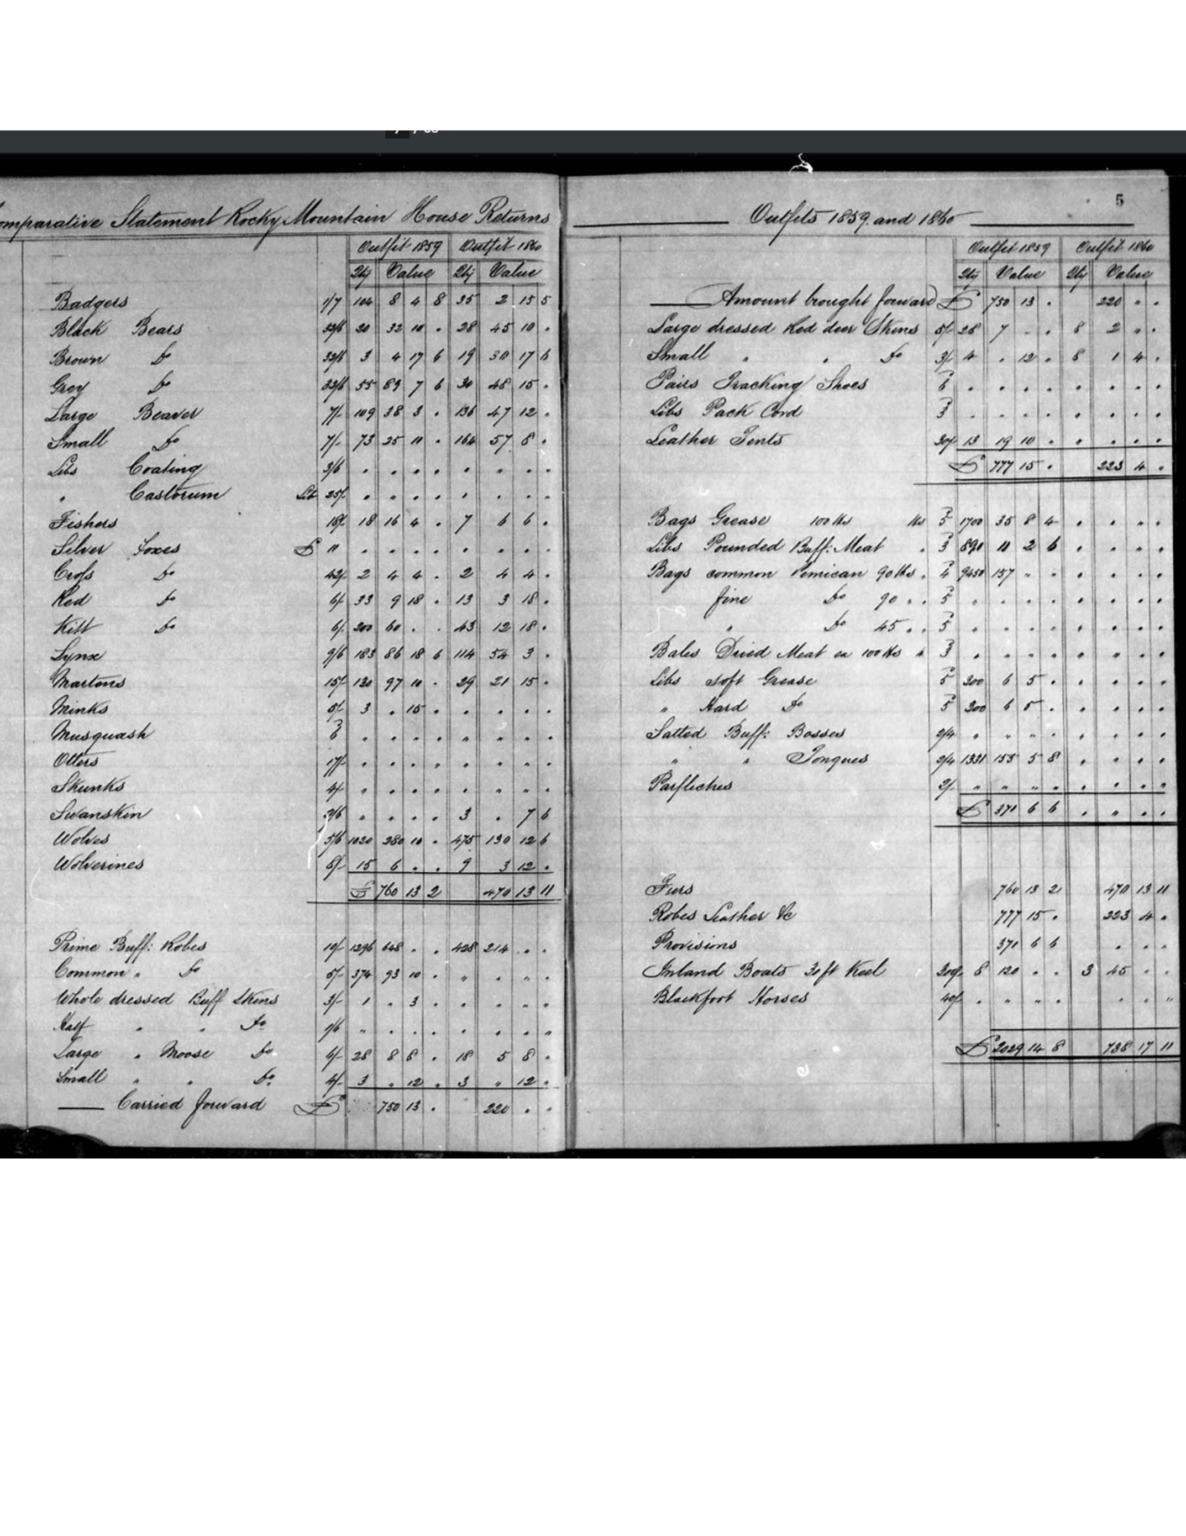 Comparative Statement Rocky Mountain House Returns
Outfit 1859 Outfit 1860
Qty Value Qty Value
Badgers 1/7 104 8 4 8 35 2 15 5
Black Bears 32/6 20 32 10 . 28 45 10 .
Brown Do 32/6 3 4 17 6 19 30 17 6
Grey Do 32/6 55 89 7 6 30 48 15 .
Large Beaver 7/- 109 38 3 . 136 47 12 .
Small Do 7/- 73 25 11 . 164 57 8 .
Libs Coating 2/6 . . . . . . . .
" Castorum Lb 25/- . . . . . . . .
Fishers 18/- 18 16 4 . 7 6 6 .
Silver Foxes £ " . . . . . . . .
Cross Do 42/- 2 4 4 . 2 4 4 .
Red Do 6/- 33 9 18 . 13 3 18 .
Kitt Do 6/- 200 60 . . 43 12 18 .
Lynx 9/6 183 86 18 6 114 54 3 .
Martens 15/- 130 97 10 . 29 21 15 .
Minks 5/- 3 . 15 . . . . .
Musquash 6 . . . . " " . .
Otters 17/- . . . . . . . .
Skunks 4/- . . . . . . . .
Swanskin 2/6 . . . . 3 . 7 6
Wolves 5/6 1020 280 10 . 475 130 12 6
Wolverines 8/- 15 6 . . 9 3 12 .
£ 760 13 2 470 13 11
Prime Buff: Robes 10/- 1296 648 . . 428 214 . .
Common " Do 5/- 374 93 10 . " . . .
Whole dressed Buff Skins 3/- 1 . 3 . . . . .
Half " " Do 1/6 " . . . . . . "
Large " Moose Do 6/- 28 8 8 . 18 5 8 .
Small " " Do 4/- 3 . 12 . 3 " 12 .
Carried forward £ 750 13 . 220 . .
5
Outfits 1859 and 1860
Outfit 1859 Outfit 1860
Qty Value Qty Value
Amount brought forward £ 750 13 . 220 . .
Large dressed Red deer Skins 5/- 28 7 . . 8 2 . .
Small " " Do 3/- 4 . 12 . 8 1 4 .
Pairs Tracking Shoes 6 . . . . . . . .
Libs Pack Cord 3 . . . . . . . .
Leather Tents 30/- 13 19 10 . . . . .
£ 777 15 . 223 4 .
Bags Grease 100 lbs lbs 5 1700 35 8 4 . . . .
Libs Pounded Buff: Meat " 3 890 11 2 6 . . . .
Bags common Pemican 90 lbs " 4 9450 157 " . . . . .
fine Do 90 . . 5 . . . . . . . .
" Do 45 . . 5 . . . . . . . .
Bales Dried Meat ea 100 lbs " 3 . . . . . . . .
Libs soft Grease 5 300 6 5 . . . . .
" Hard Do 5 300 6 5 . . . . .
Salted Buff: Bosses 2/4 . . . . . . . .
" " Tongues 2/4 1331 155 5 8 . . . .
Parfleches 2/- " " " " . . . .
£ 370 6 6 . . . .
Furs 760 13 2 470 13 11
Robes Leather &c 777 15 . 223 4 .
Provisions 370 6 6 . . .
Inland Boats 30 ft Keel 300/- 8 120 . . 3 45 . .
Blackfoot Horses 40/- . " " . . . "
£ 2029 14 8 738 17 11